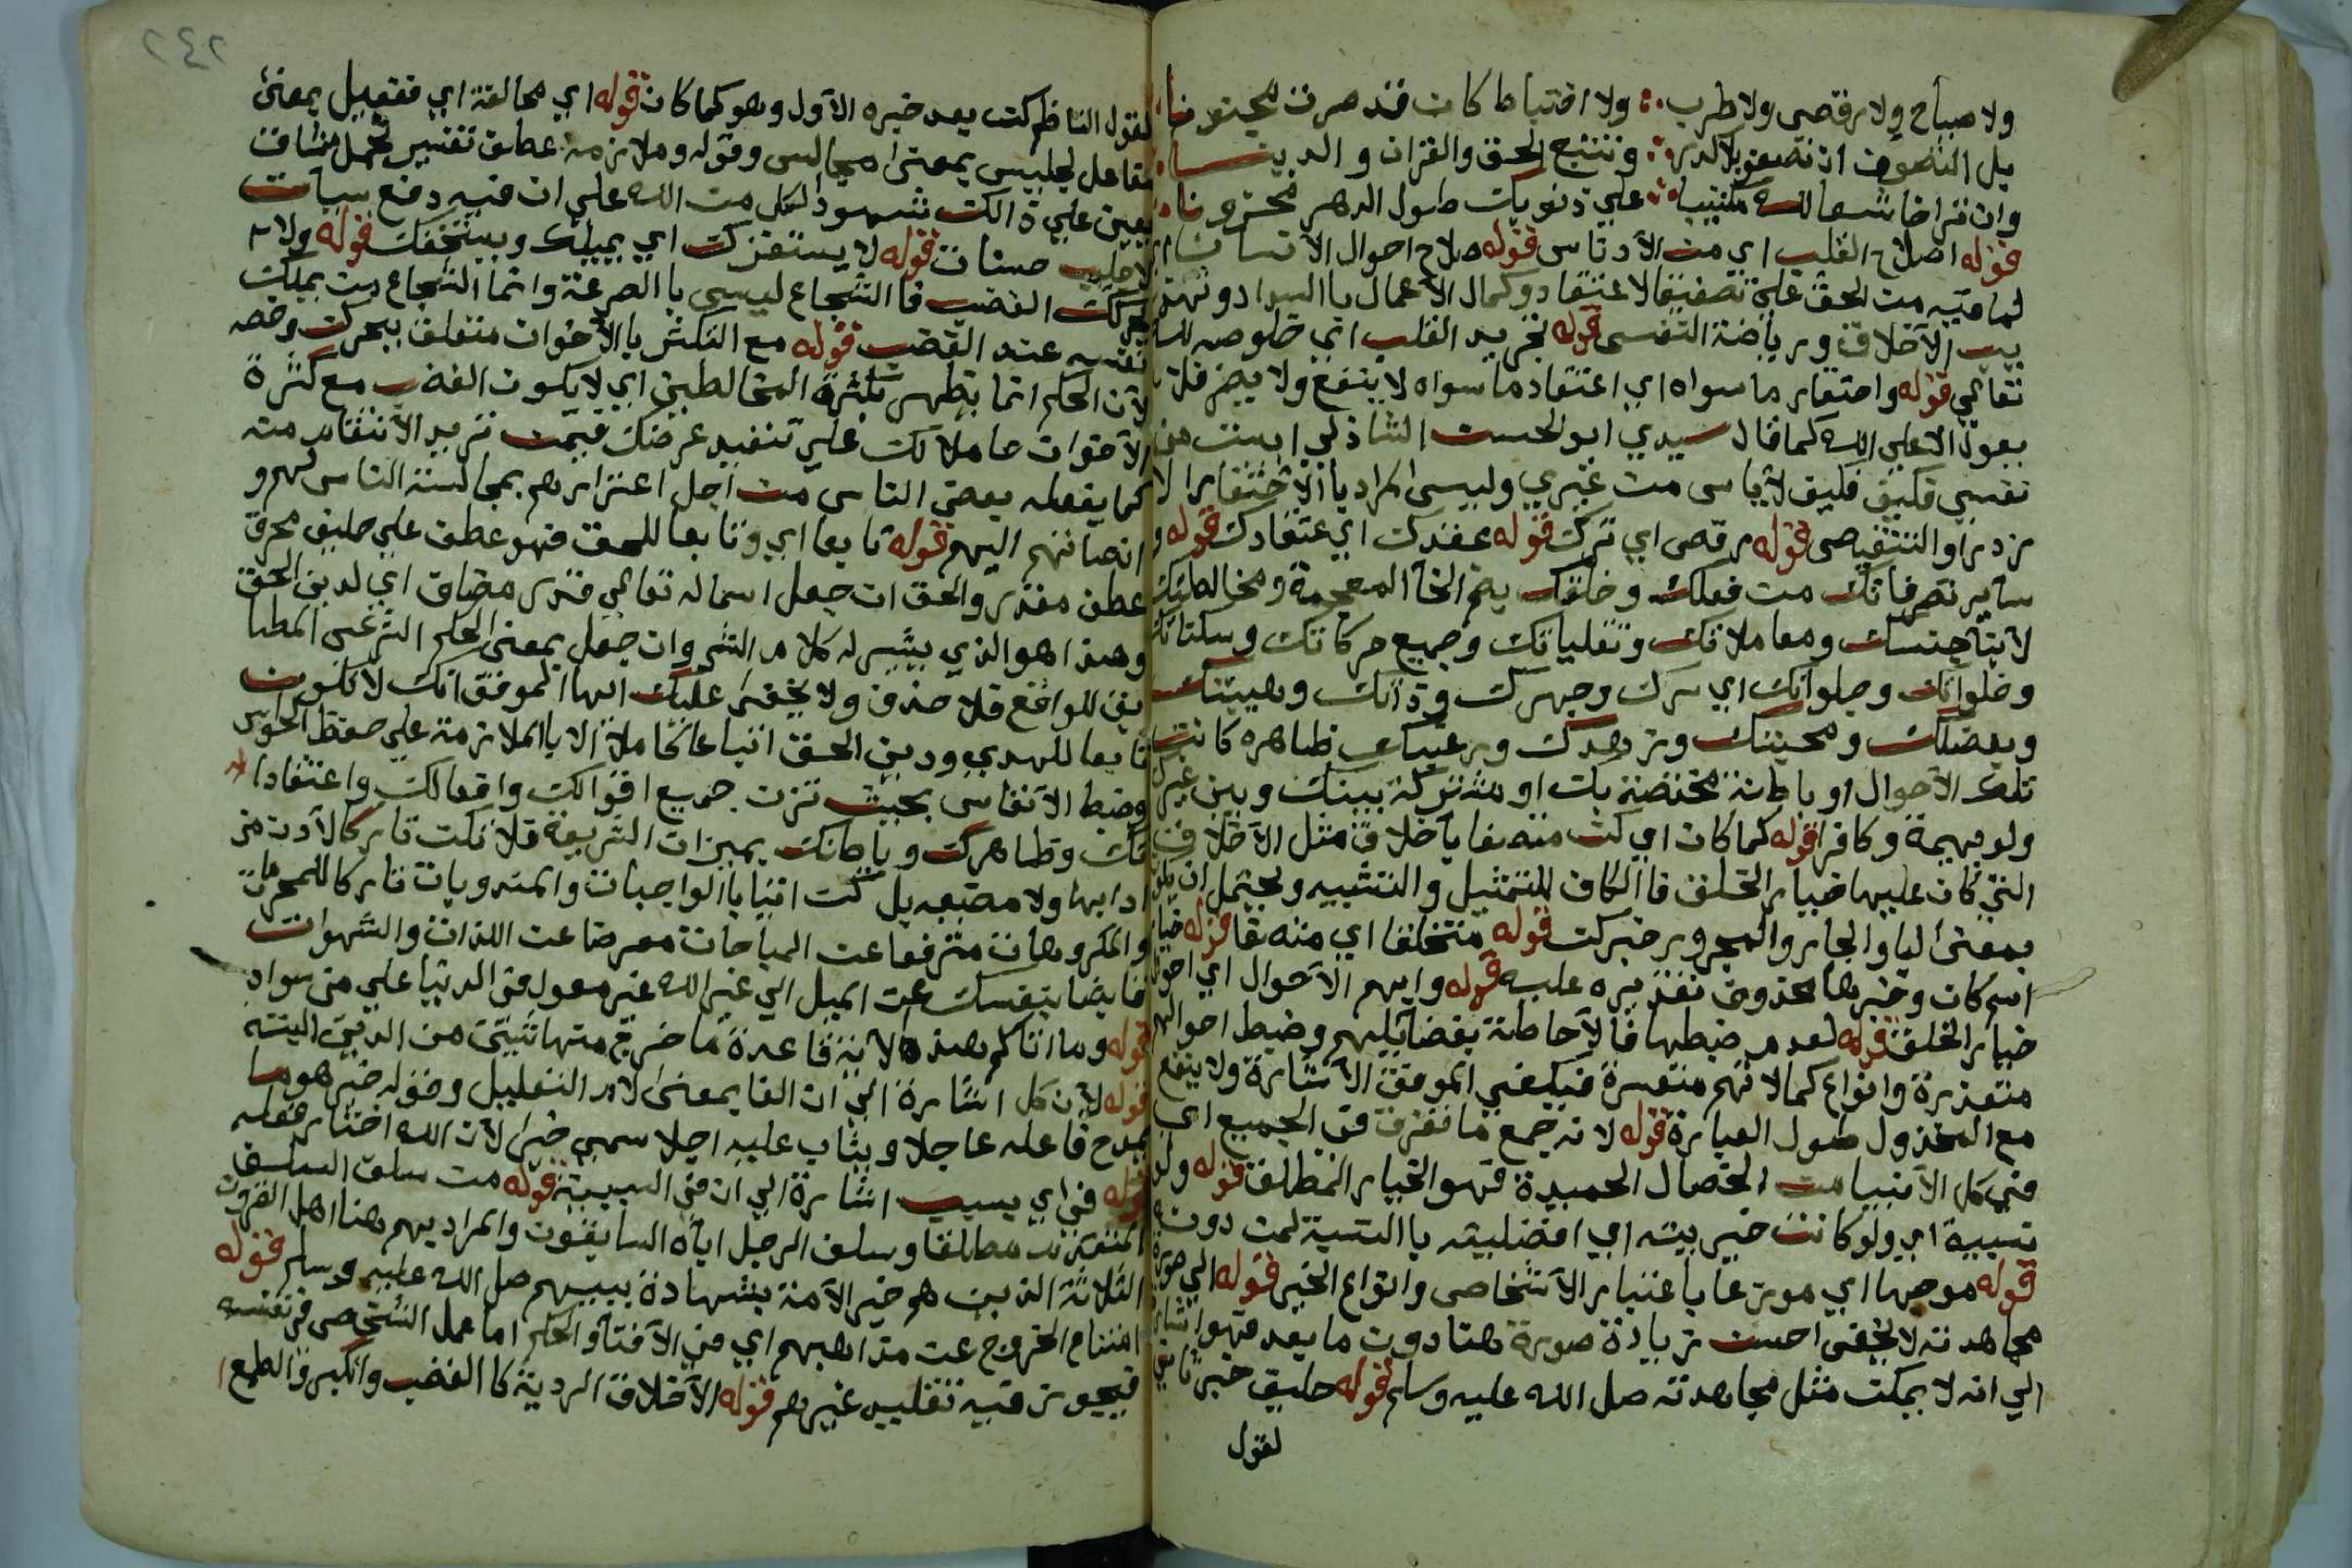 ولا صياح ولا رقص ولا طرب ولا اختباط كان قد صرت مجنونا
بل التصوف ان تصفو بلا كدر وتتبع الحق والقران والدينا
وان ترا خاشعا لله مكتيبا علي ذنوبك طول الدهر محزونا
قوله اصلاح القلب اي من الأدناس قوله صلاح احوال الانسان
لما فيه من الحق علي تصفية الاعتقاد وكمال الأعمال باالسداد وتهذ
يب الأخلاق ورياضة النفس قوله تجريد القلب اي خلوصه لله
تعالي قوله واحتقار ما سواه اي اعتقاد ما سواه لا ينفع ولا يضر فلا
يعول الا علي الله كما قال سيدي ابو الحسن الشاذلي ايست من
نفسي فكيف لا ياس من غيري وليس المراد باالأحتقار الا
زدرا والتنقيص قوله رفض اي ترك قوله عقدك اي اعتقادك قوله و
ساير تصرفاتك من فعلك وخلقك بضم الخآ المعجمة ومخالطتك
لأبنآ جنسك ومعاملاتك وتقلباتك وجميع حركاتك وسكناتك
وخلواتك وجلواتك اي سرك وجهرك وذاتك وهيبتك
وبغضك ومحبتك وزهدك ورغبتك ظاهره كانت
تلك الأحوال او باطنة مختصة بك او مشتركة بينك وبين غيرك
ولو بهيمة وكافر قوله كما كان اي كن متصفا بأخلاق مثل الأخلاق
التي كان عليها خيار الخلق فاالكاف للتمثيل والتشبيه ويحتمل ان يكون
بمعني البا والجار والمجرور خبركن قوله متخلقا اي متصفا قوله خيار
اسم كان وخبرها محذوف تقديره عليه قوله وابهم الأحوال اي احوال
خيار الخلق قوله لعدم ضبطها فالأحاطة بفضايلهم وضبط احوالهم
متعذرة وانواع كمالاتهم متعسرة فيكفي الموفق الأشارة ولا ينفع
مع المخذول طول العبارة قوله لانه جمع ما تفرق في الجميع اي
في كل الأنبيا من الخصال الحميدة فهو الخيار المطلق قوله ولو
نسبية اي ولو كانت خيريته اي افضليته باالنسبة لمن دونه
قوله موجها اي موزعا باعتبار الأشخاص وانواع الخير قوله الي صورة
مجاهدته لا يخفي احسن زيادة صورة هنا دون ما بعد فهو اشار
الي انه لا يمكن مثل مجاهدته صل الله عليه وسلم قوله حليف خبر ثاني
لقول
لقول الناظم كن بعد خبره الأول وهو كما كان قوله اي محالفة اي ففعيل بمعني
مفاعل لجليس بمعنى مجالس وقوله وملازمة عطف تفسير تحمل مشاق
يعين علي ذالك شهود الكل من الله علي ان فيه دفع سيآت
لأجلب حسنات قوله لا يستفزك اي يميلك ويستخفك قوله ولا
يحركك الغضب فا الشجاع ليس باالصرعة وانما الشجاع من يملك
نفسه عند الغضب قوله مع التكثر باالأخوان متعلق بيحرك وخصه
لأن الحلم انما يظهر بكثرة المخالطين اي لا يكون الغضب مع كثرة
الأخوان حاملا لك علي تنفيذ غرضك فيمن تريد الأنتقام منه
كما يفعله بعض الناس من اجل اعتزازهم بمجالسة الناس لهم و
انصاتهم اليهم قوله تابعا اي وتابعا للحق فهو عطف علي حليف بحرف
عطف مقدر والحق ان جعل اسما له تعالي قدر مضاف اي لدين الحق
وهذا هو الذي يشير له كلام الش وان جعل بمعنى الحكم الشرعى المطا
بق للواقع فلا حذف ولا يخفى عليك ايها الموفق انك لا تكون
تابعا للهدي ودين الحق اتباعا كاملا الا باالملازمة علي حفظ الحواس
وضبط الأنفاس بحيث تزن جميع اقوالك وافعالك واعتقادا
تك وظاهرك وباطنك بميزان الشريعة فلا تكن تاركا لأدب من
ادابها ولا مضيعه بل كن اتيا باالواجبات والمندوبات تاركا للمحرمات
والمكروهات مترفعا عن المباحات معرضا عن اللذات والشهوات
قابضا بنفسك عن الميل الي غير الله غير معول في الدنيا علي من سواه
قوله وما اتاكم هذه الآية قاعدة ما خرج منها شيئ من الدين البته
قوله لأن كل اشارة الي ان الفا بمعنى لام التعليل وقوله خير هو ما
يمدح فاعله عاجلا ويثاب عليه اجلا سمي خيرا لأن الله اختار فعله
قوله في اي بسبب اشارة الي ان في السببية قوله من سلف السلف
المتقدمون مطلقا وسلف الرجل ابآه السابقون والمراد بهم هنا اهل القرون
الثلاثة الذين هو خير الأمة بشهادة نبيهم صل الله عليه وسلم قوله
امتناع الخروج عن مذاهبهم اي في الأفتآ والحكم اما عمل الشخص في نفسه
فيجوز فيه تقليد غيرهم قوله الأخلاق الردية كا الغضب والكبر والطمع
٢٤٢